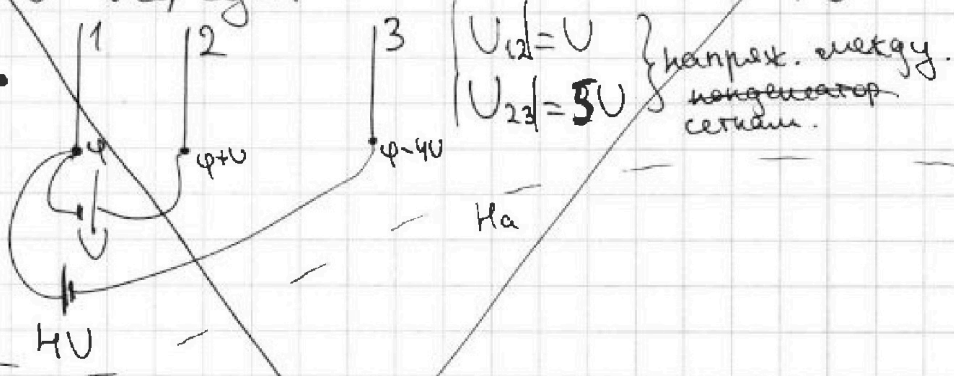 1 2 3
|U₁₂| = U
|U₂₃| = 5U
напряж. между
конденсатор
сетками.
φ φ+U φ-4U
U
На
4U